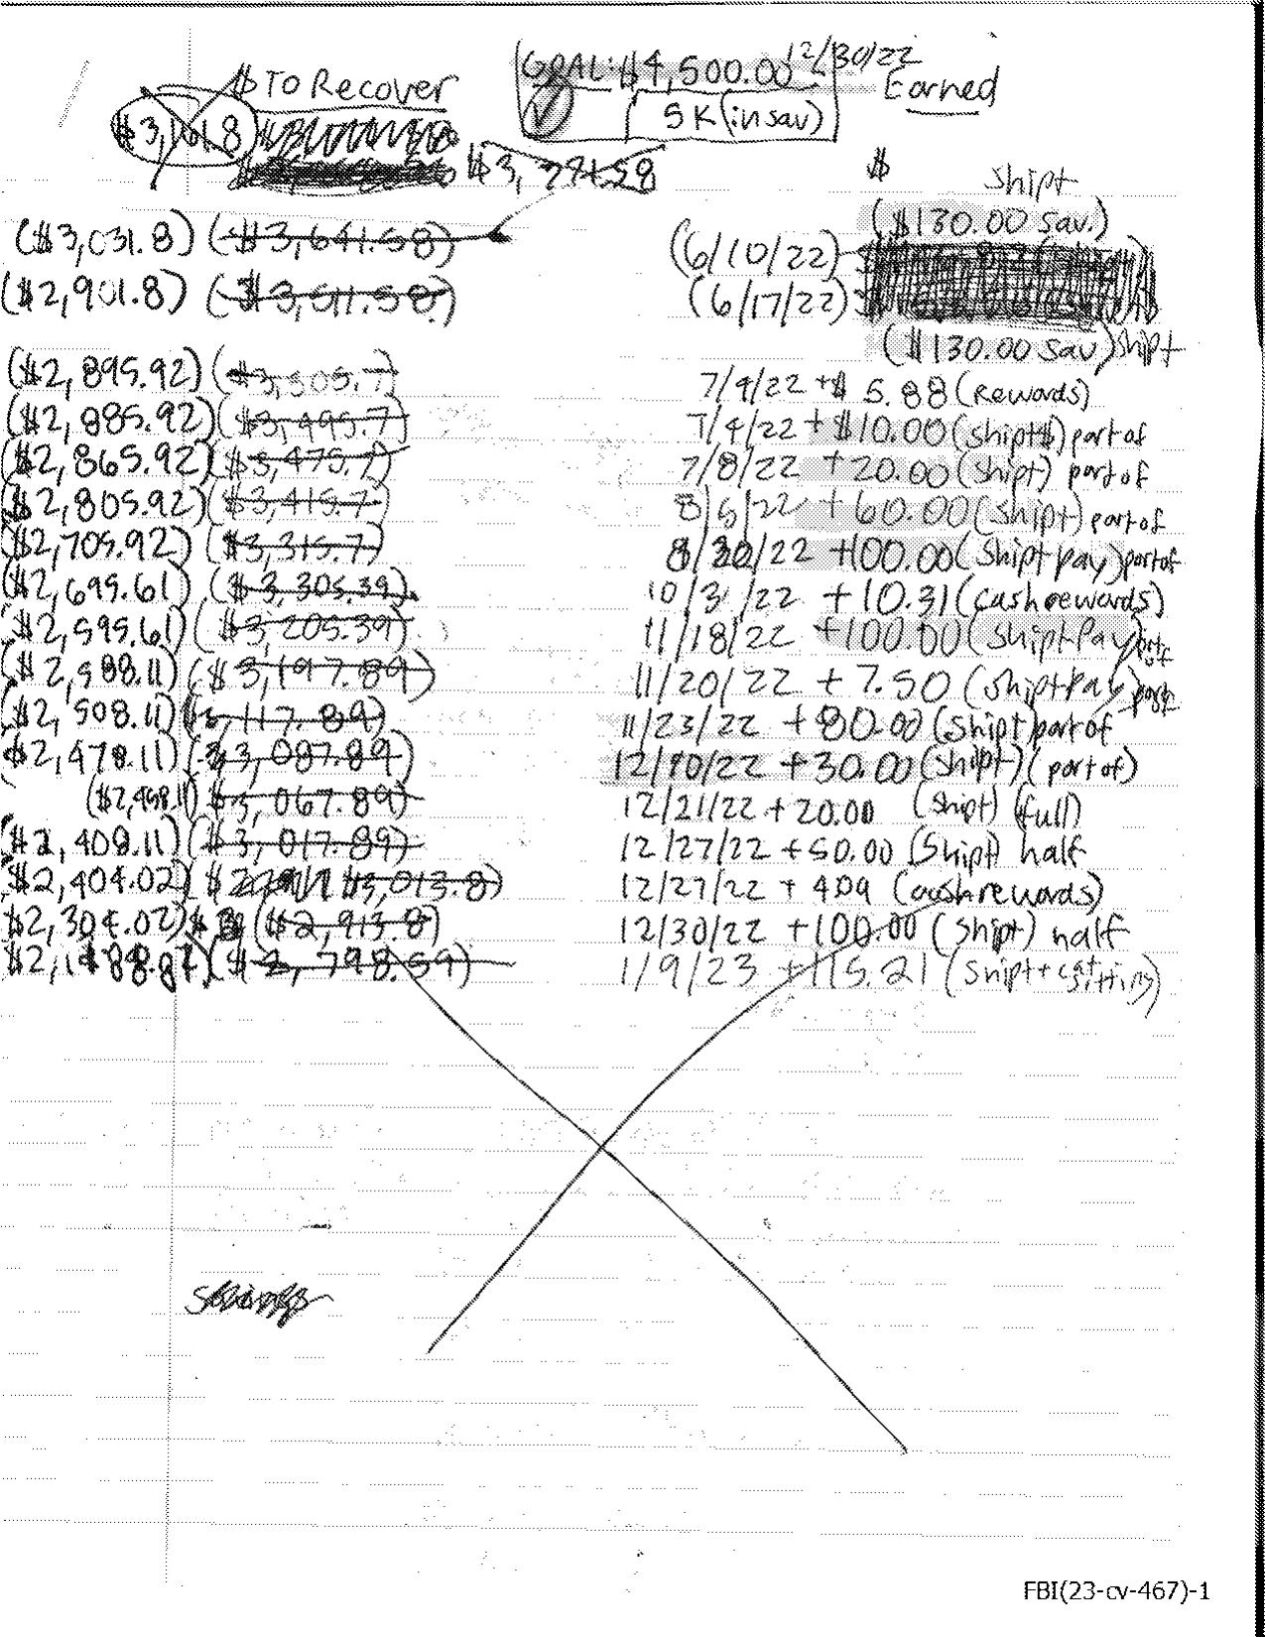 GOAL: $4,500.00 12/30/22
$ TO Recover
Earned
5K (in sav)
$3,161.8
$ Shipt
($130.00 sav.)
($3,031.8) ($3,641.58) (6/10/22)
($2,901.8) ($3,511.58) (6/17/22)
($130.00 sav) shipt
($2,895.92) ($3,505.7) 7/4/22 +$ 5.88 (Rewards)
($2,885.92) ($3,495.7) 7/4/22 + $10.00 (shipt$) part of
($2,865.92) ($3,475.7) 7/8/22 +20.00 (shipt) part of
($2,805.92) ($3,415.7) 8/5/22 +60.00 (shipt) part of
($2,705.92) ($3,315.7) 8/20/22 +100.00 (Shipt pay) part of
($2,695.61) ($3,305.39) 10/3/22 +10.31 (cash rewards)
$2,595.61) ($3,205.39) 11/18/22 +100.00 (Shipt Pay) part of
($2,588.11) ($3,197.89) 11/20/22 + 7.50 (Shipt Pay) part
($2,508.11) ($3,117.89) 11/23/22 +80.00 (Shipt) part of
$2,478.11) ($3,087.89) 12/10/22 +30.00 (Shipt) (part of)
($2,458.11) $3,067.89) 12/21/22 + 20.00 (Shipt) (full)
$2,408.11) ($3,017.89) 12/27/22 +50.00 (Shipt) half
$2,404.02) $3,013.8) 12/27/22 + 4.09 (cash rewards)
$2,304.02) ($2,913.8) 12/30/22 +100.00 (Shipt) half
($2,798.59) 1/9/23 +115.21 (Shipt + cat sitting)
FBI(23-cv-467)-1